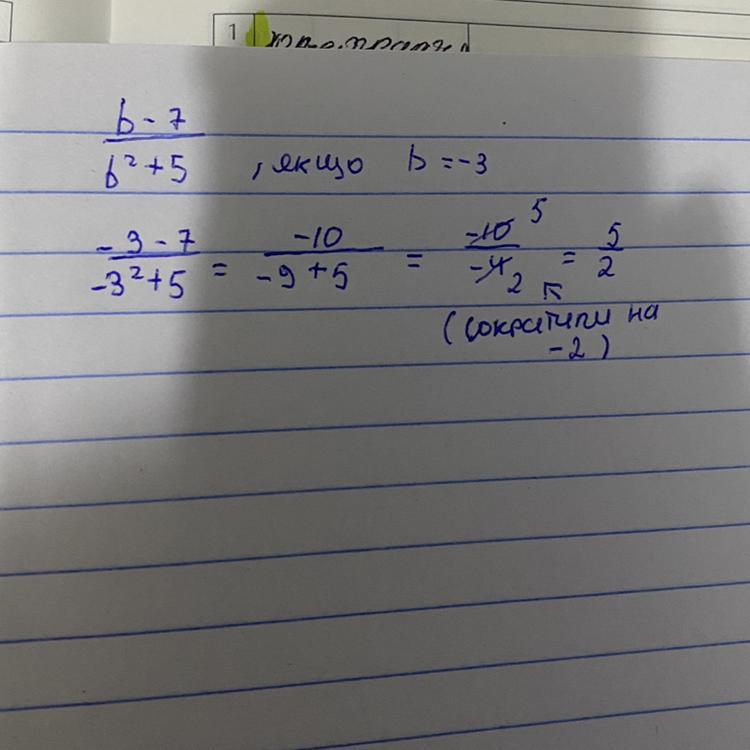 1
b - 7
b² + 5 , якщо b = -3
-3 - 7 / -3² + 5 = -10 / -9 + 5 = -10 5 / -4 2 = 5 / 2
(сократили на
-2)